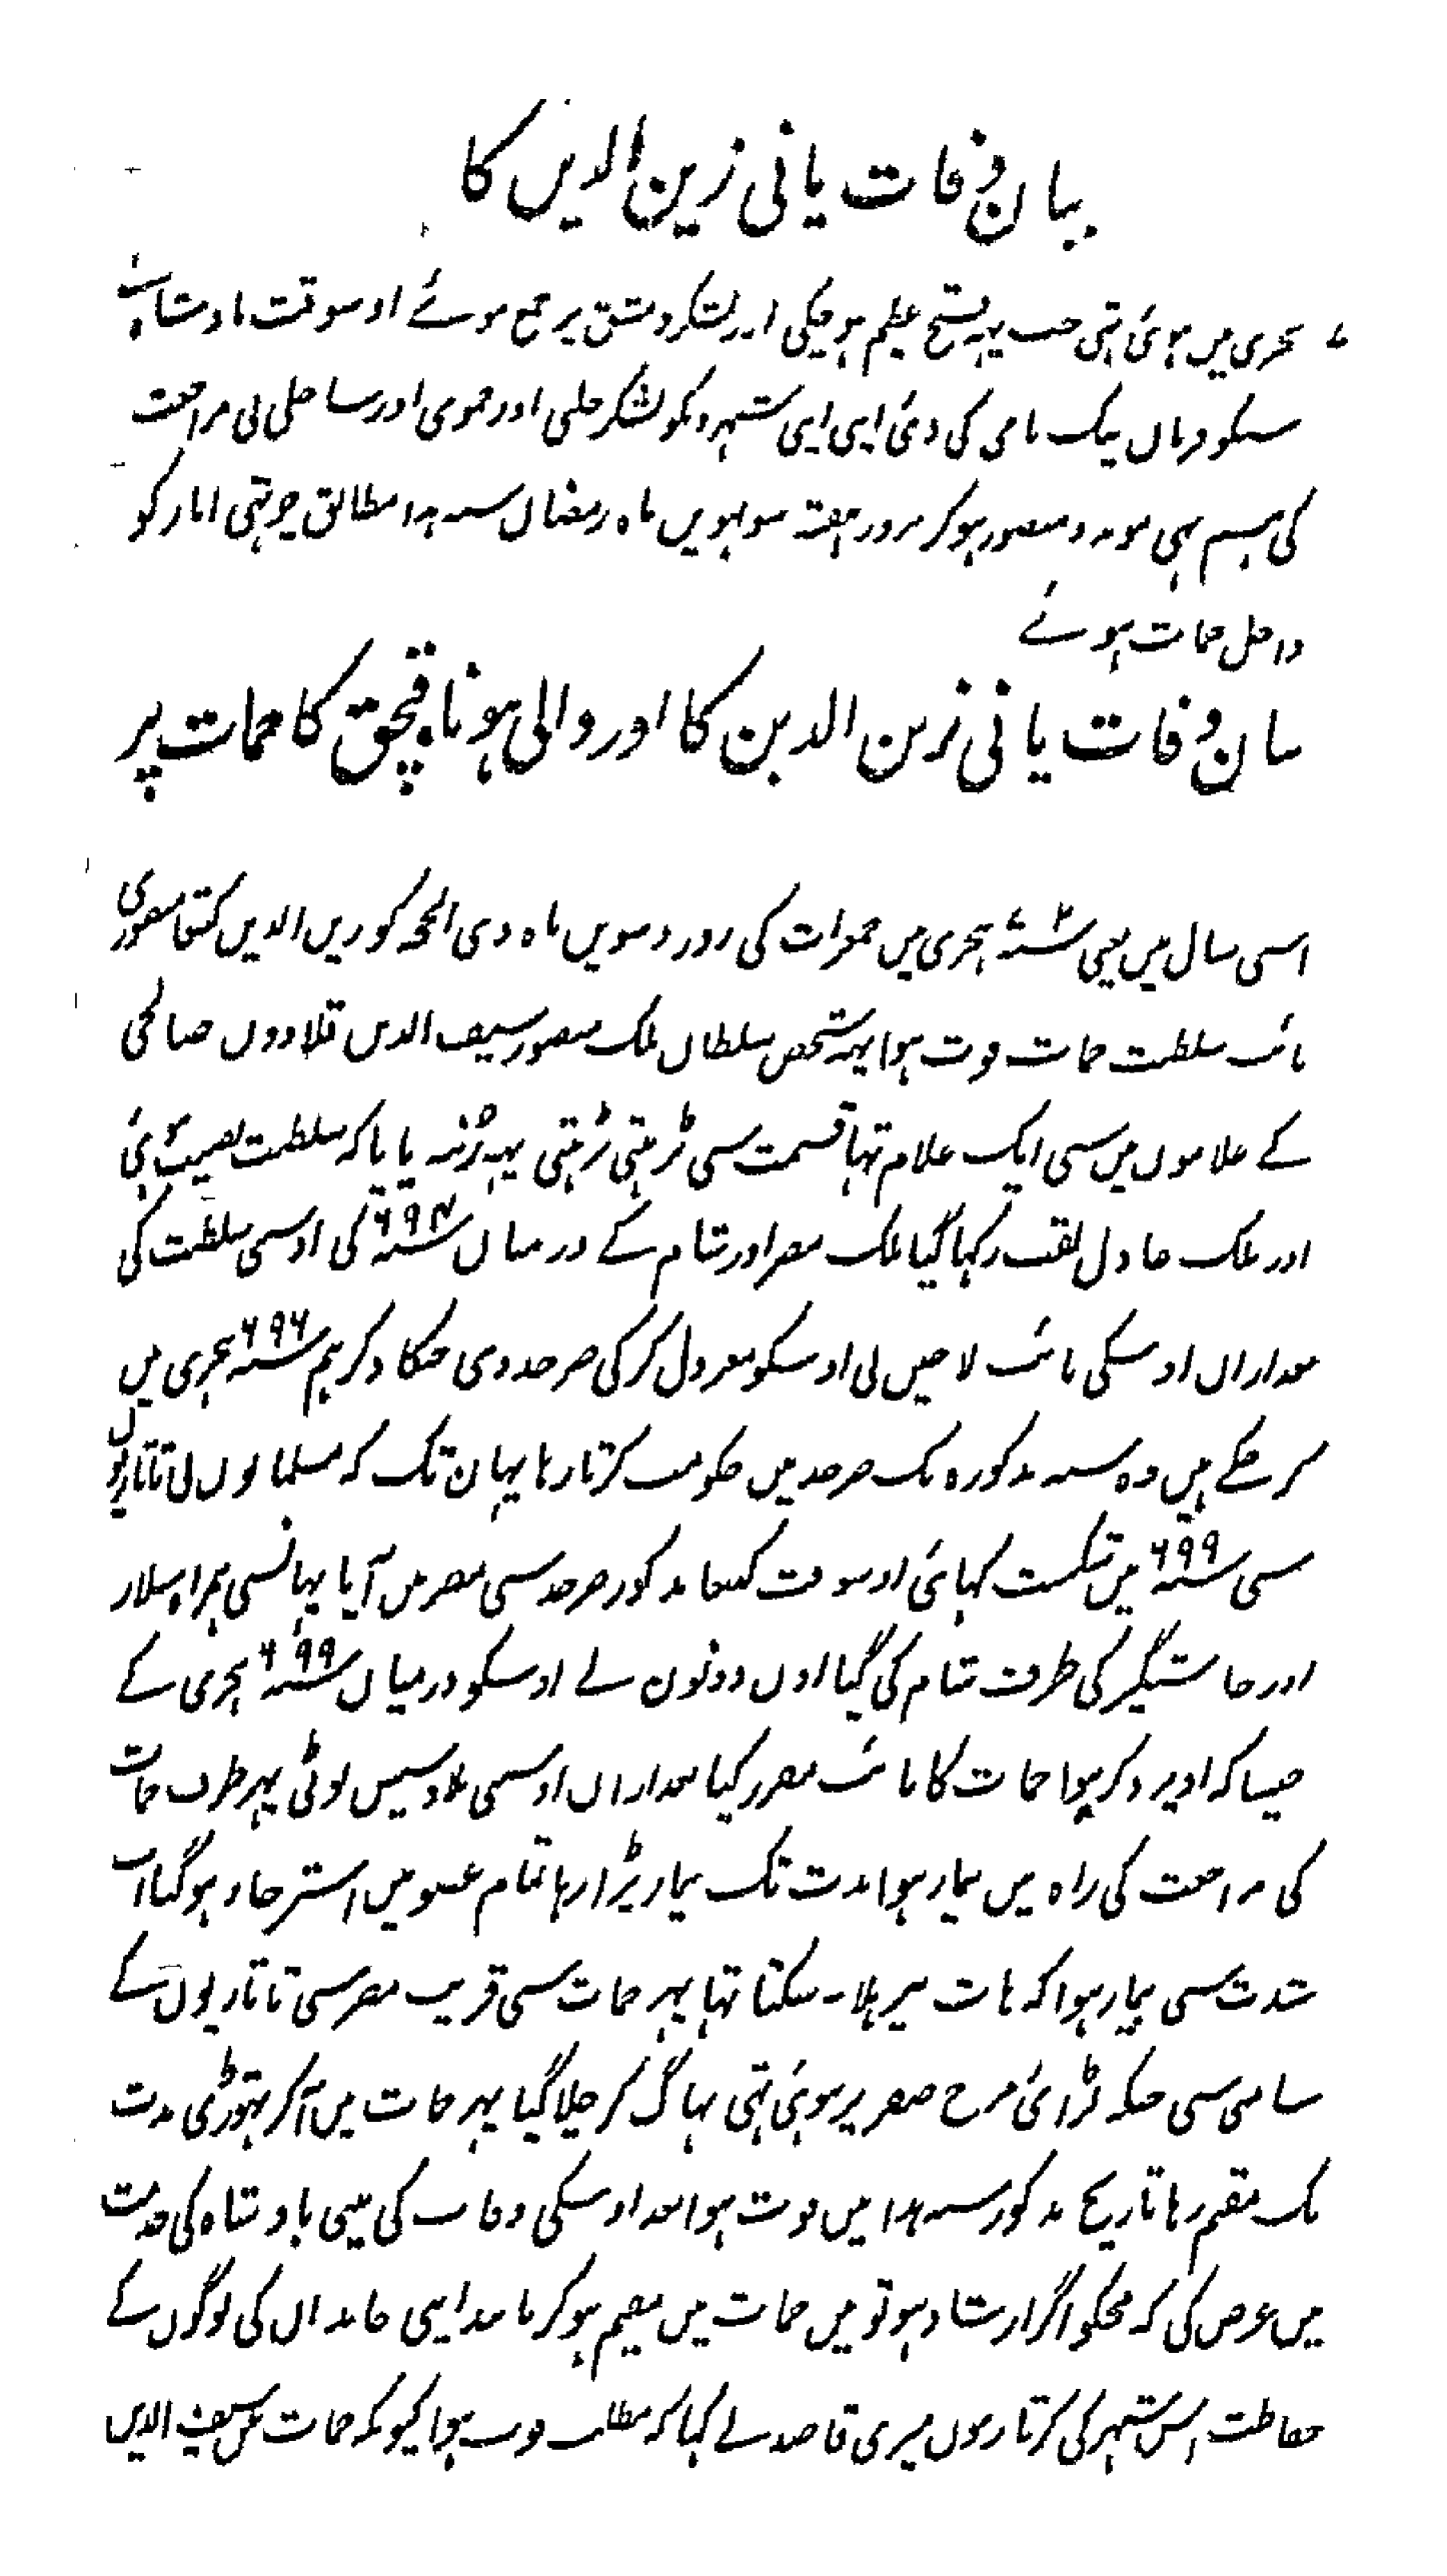 بیان وفات یانی زین الدین کا
ہجری میں ہوئی تہی جب یہہ فتح عظیم ہوچکی اور لشکر دمشق پر جمع ہوئے اوسوقت بادشاہ نے
سبکو فرمان نیک نامی کی دئی اپنی اپنی شہرونکو لشکر حلبی اور حموی اور ساحلی نی مراجعت
کی ہم بہی موید و منصور ہوکر بروز ہفتہ سولہویں ماہ رمضان سنہ ہذا مطابق چوتہی ایار کو
داخل حمات ہوئے
بیان وفات یانی زین الدین کا اور والی ہونا قبجق کا حمات پر
اسی سال میں یعنی سنہ ۷۰۲ ہجری میں جمعرات کی روز دسویں ماہ ذی الحجہ کو زین الدین کتبغا منصوری
نائب سلطنت حمات فوت ہوا یہہ شخص سلطان ملک منصور سیف الدین قلاوون صالحی
کے غلاموں میں سی ایک غلام تہا قسمت سی بڑہتی بڑہتی یہہ رتبہ پایا کہ سلطنت نصیب ہوئی
اور ملک عادل لقب رکہا گیا ملک مصر اور شام کے درمیان سنہ ۶۹۴ کی اوسی سلطنت کی
بعد ازاں اوسکی نائب لاجین نی اوسکو معزول کر کی صرخد دی جسکا ذکر ہم سنہ ۶۹۶ ہجری میں
کر چکے ہیں وہ سنہ مذکورہ تک صرخد میں حکومت کرتا رہا یہان تک کہ مسلمانوں نی تاتاریوں
سی سنہ ۶۹۹ میں شکست کہائی اوسوقت کتبغا مذکور صرخد سی مصر میں آیا یہانسی ہمراہ سلار
اور جاشنگیر کی طرف شام کی گیا اون دونون نے اوسکو درمیان سنہ ۶۹۹ ہجری کے
جیسا کہ اوپر ذکر ہوا حمات کا نائب مقرر کیا بعد ازاں اوسی بلاد سیس لوٹی پہر طرف حمات
کی مراجعت کی راہ میں بیمار ہوا مدت تک بیمار پڑا رہا تمام عضو میں استرخا ہو گیا اب
شدت سی بیمار ہوا کہ ہات پیر ہلا نہ سکتا تہا پہر حمات سی قریب مصر سی تاتاریوں کے
سامنی سی جبکہ لڑائی مرج صفر پر ہوئی تہی بہاگ کر چلا گیا پہر حمات میں آکر تہوڑی مدت
تک مقیم رہا تاریخ مذکور سنہ ہذا میں فوت ہوا بعد اوسکی وفات کی مینی بادشاہ کی خدمت
میں عرض کی کہ مجکو اگر ارشاد ہو تو میں حمات میں مقیم ہوکر مانند اپنی خاندان کی لوگوں کے
حفاظت اس شہر کی کرتا رہوں میری قاصد نے کہا کہ مطلب فوت ہوا کیونکہ حمات سیف الدین